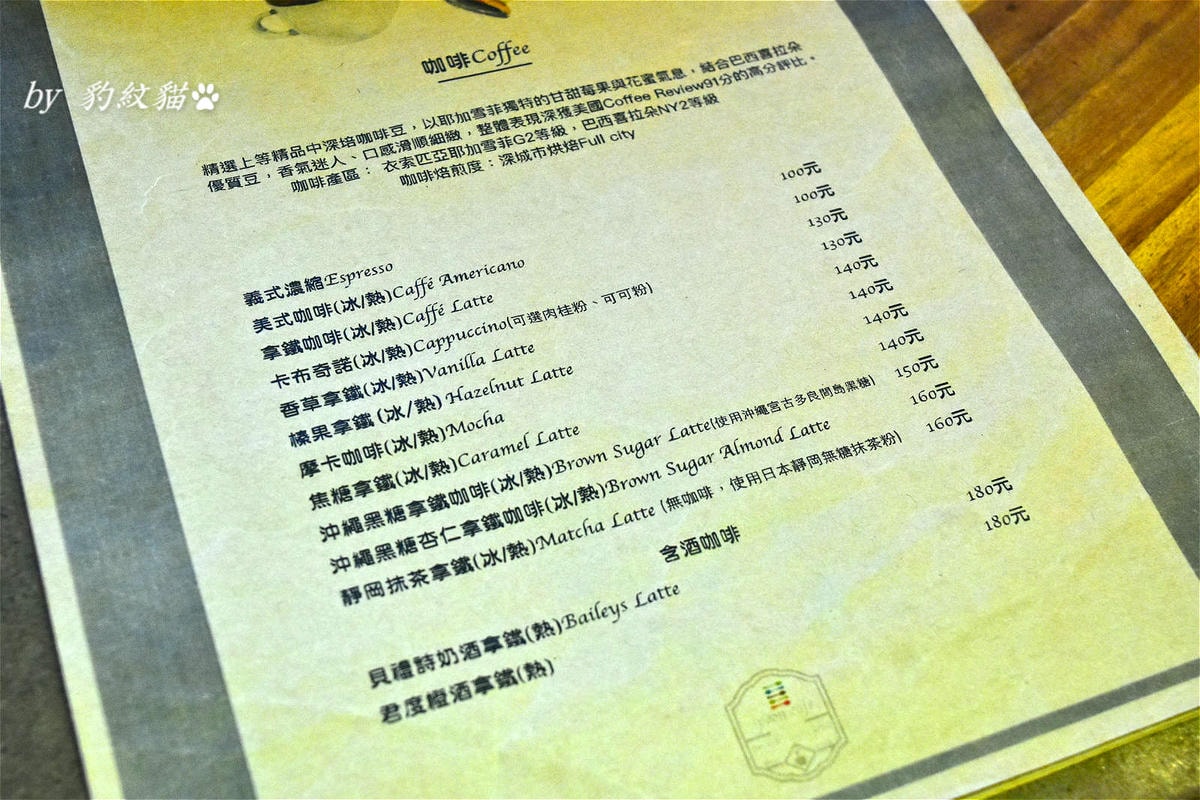 咖啡Coffee
by 豹紋貓
精選上等精品中深培咖啡豆，以耶加雪菲獨特的甘甜莓果與花蜜氣息，結合巴西喜拉朵
優質豆，香氣迷人、口感滑順細緻，整體表現深獲美國Coffee Review91分的高分評比。
咖啡產區： 衣索匹亞耶加雪菲G2等級，巴西喜拉朵NY2等級
咖啡焙煎度：深城市烘焙Full city
義式濃縮Espresso 100元
美式咖啡(冰/熱)Caffé Americano 100元
拿鐵咖啡(冰/熱)Caffé Latte 130元
卡布奇諾(冰/熱)Cappuccino(可選肉桂粉、可可粉) 130元
香草拿鐵(冰/熱)Vanilla Latte 140元
榛果拿鐵(冰/熱) Hazelnut Latte 140元
摩卡咖啡(冰/熱)Mocha 140元
焦糖拿鐵(冰/熱)Caramel Latte 140元
沖繩黑糖拿鐵咖啡(冰/熱)Brown Sugar Latte(使用沖繩宮古多良間島黑糖) 150元
沖繩黑糖杏仁拿鐵咖啡(冰/熱)Brown Sugar Almond Latte 160元
靜岡抹茶拿鐵(冰/熱)Matcha Latte (無咖啡，使用日本靜岡無糖抹茶粉) 160元
含酒咖啡
貝禮詩奶酒拿鐵(熱)Baileys Latte 180元
君度橙酒拿鐵(熱) 180元